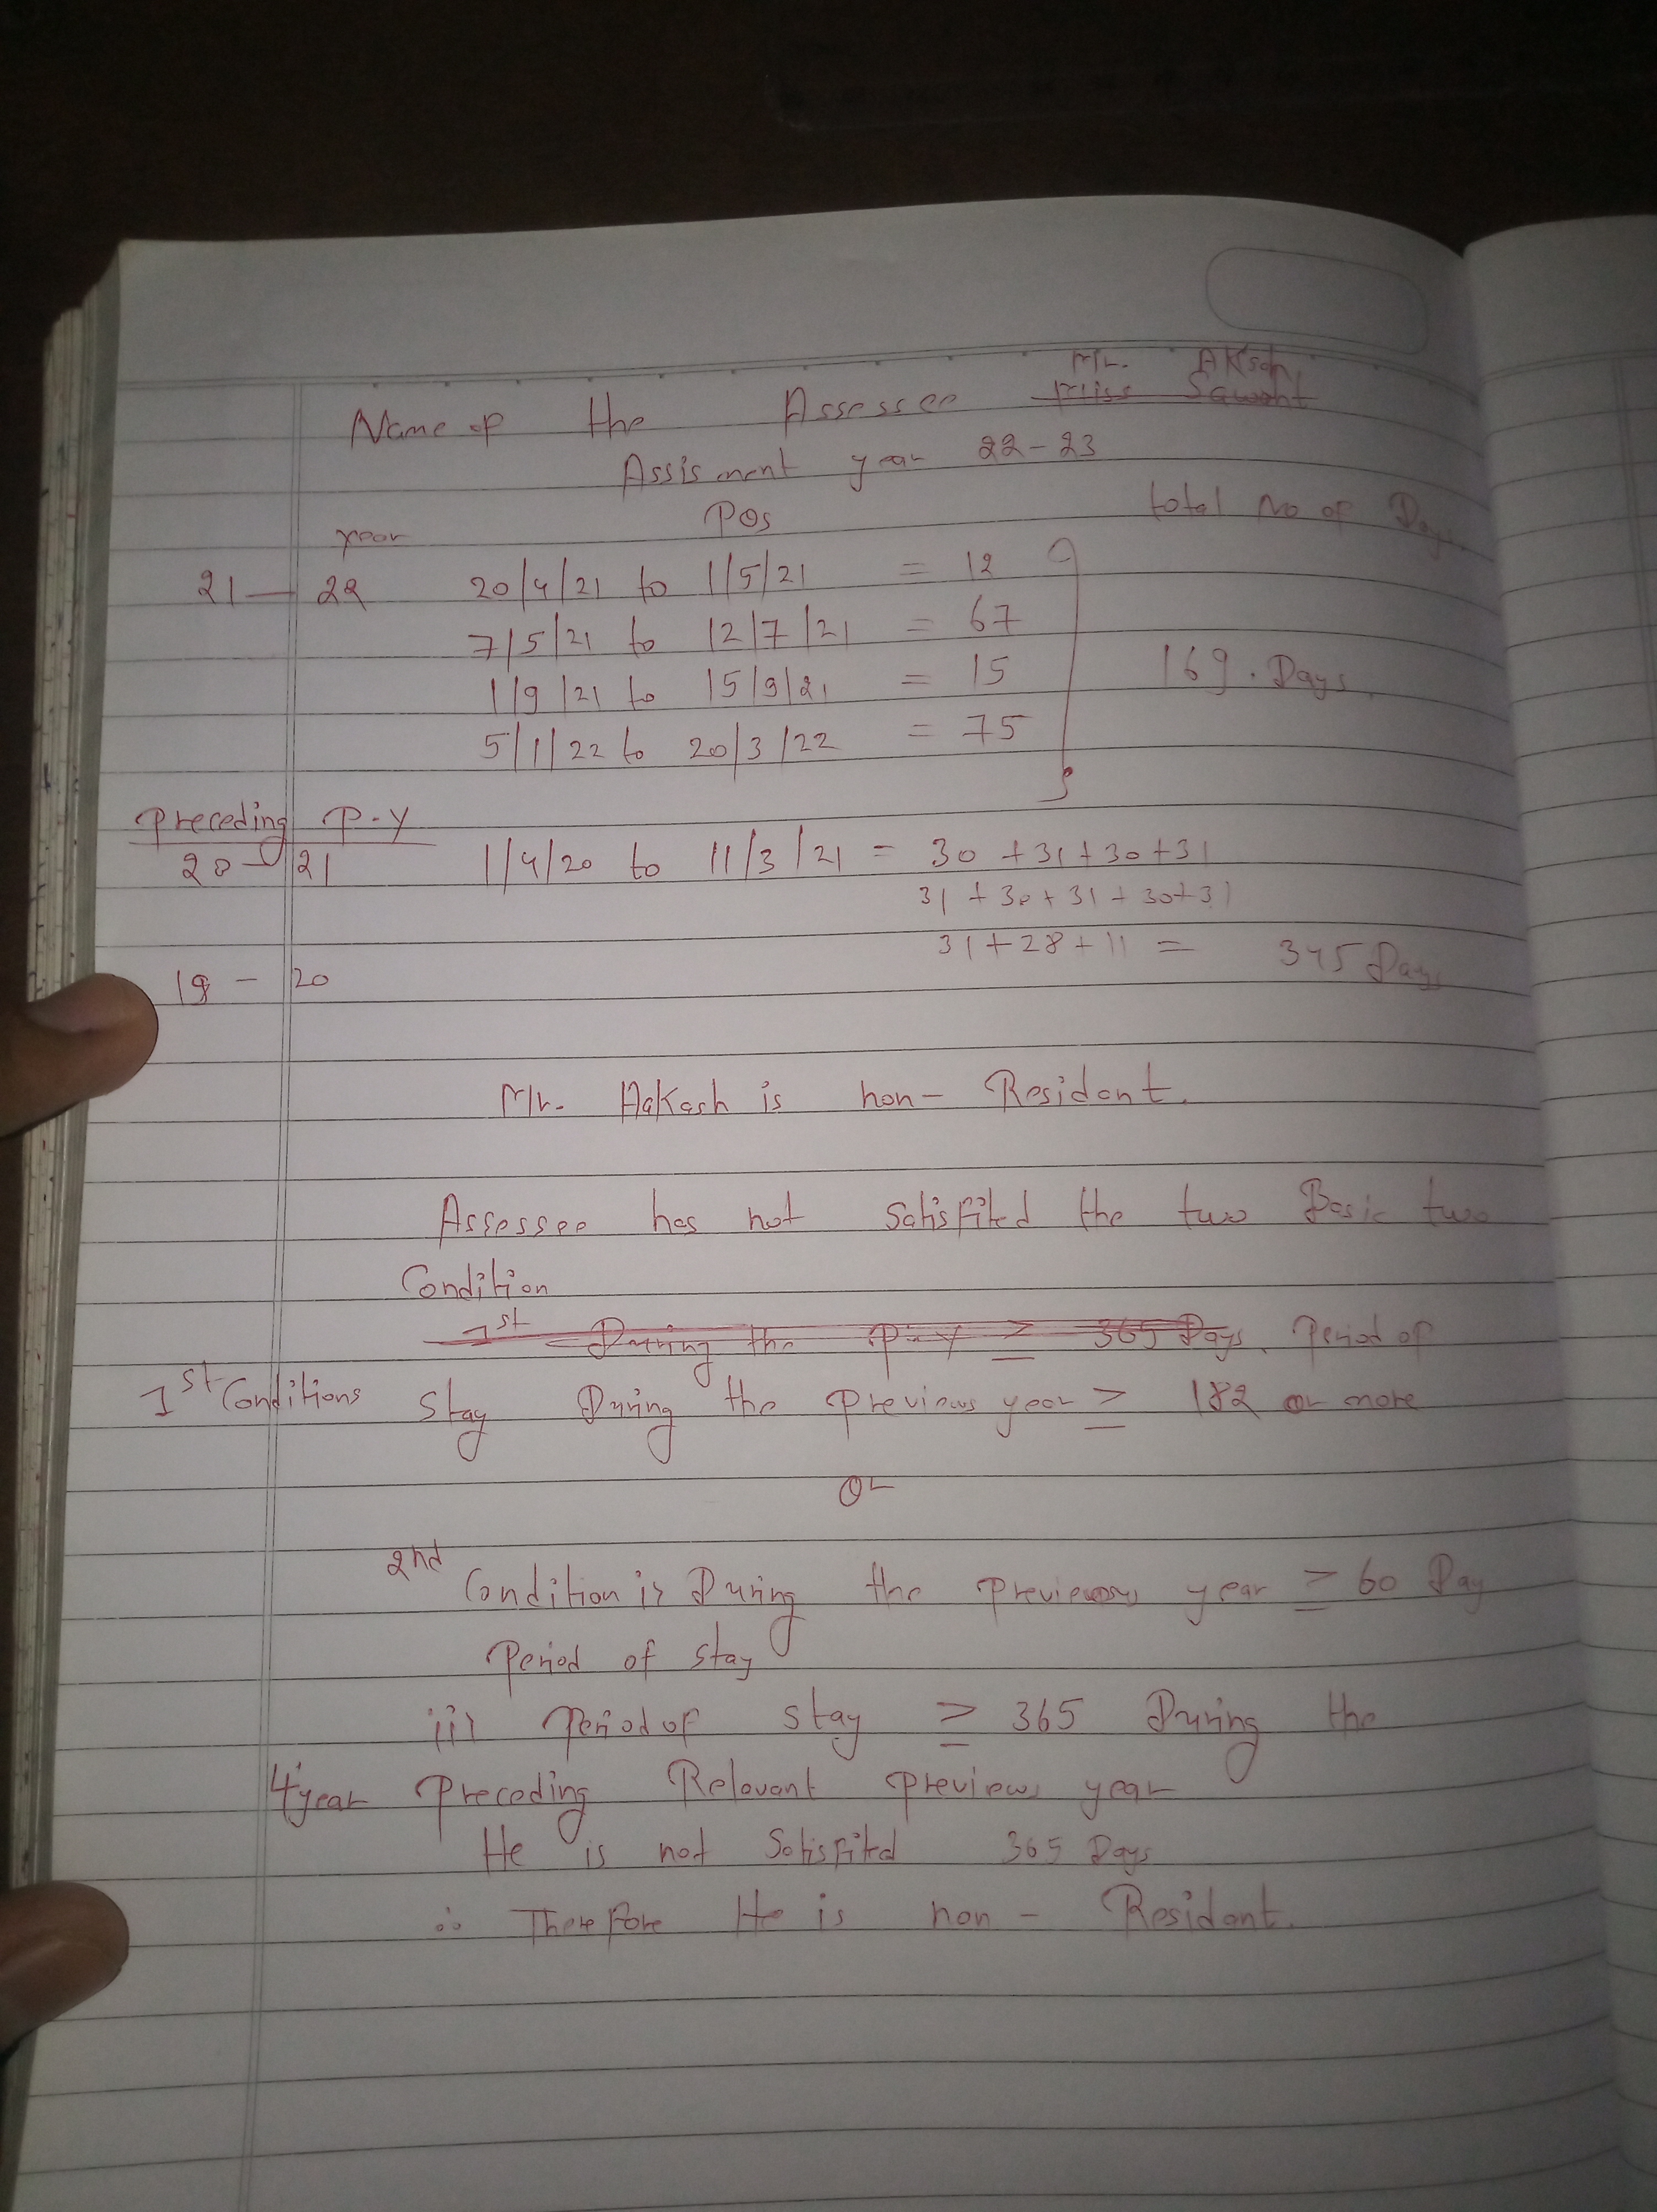 Mr. Aksah
Name of the Assessee Miss Sawant
Assisment year 22-23
year POS total No of Day
21 — 22 20/4/21 to 1/5/21 = 12
7/5/21 to 12/7/21 = 67
1/9/21 to 15/9/21 = 15 169. Days
5/1/22 to 20/3/22 = 75
Preceding P.Y
20 - 21 1/4/20 to 11/3/21 = 30 + 31 + 30 + 31
31 + 30 + 31 + 30 + 31
31 + 28 + 11 = 345 Days
19 - 20
Mr. Aakash is non- Resident.
Assessee has not satisfited the two Basic two
Condition
1st During the P.Y ≥ 365 Days. Period of
1st Conditions stay During the previous year ≥ 182 or more
Or
2nd Condition is During the previous year ≥ 60 Day
Period of stay
ii) Period of stay ≥ 365 During the
4 year Preceding Relevant previews year
He is not Satisfited 365 Days
∴ Therefore He is non - Resident.